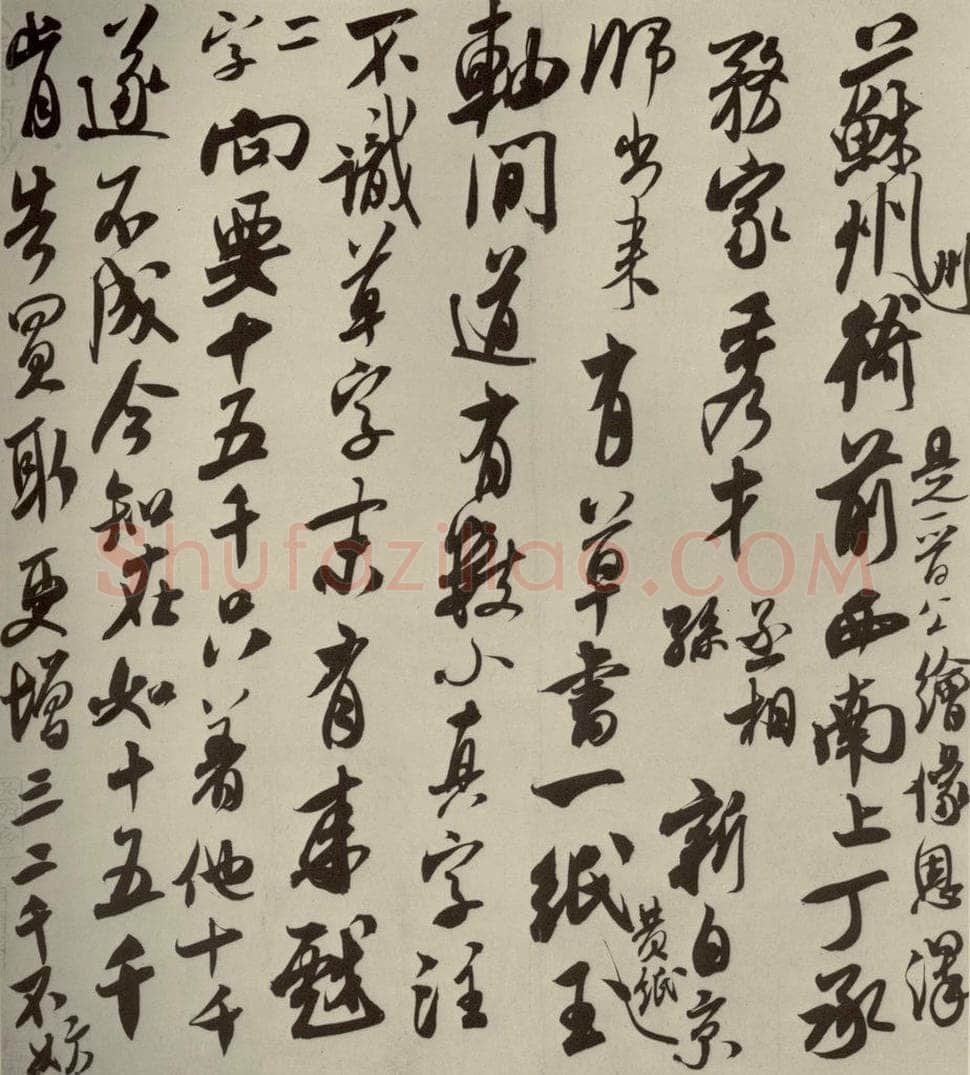 是晉公繪像恩澤
蘇州州衙前西南上丁承
務家秀才
丞相
孫
新自京
師出來有草書一紙
黃紙
玉
軸間道有數小真字注
不識草字 有來戲
二
字
向要十五千只著他十千
遂不成今知在如十五千
肯告買取更增三二千不妨
Shufaziliao.COM